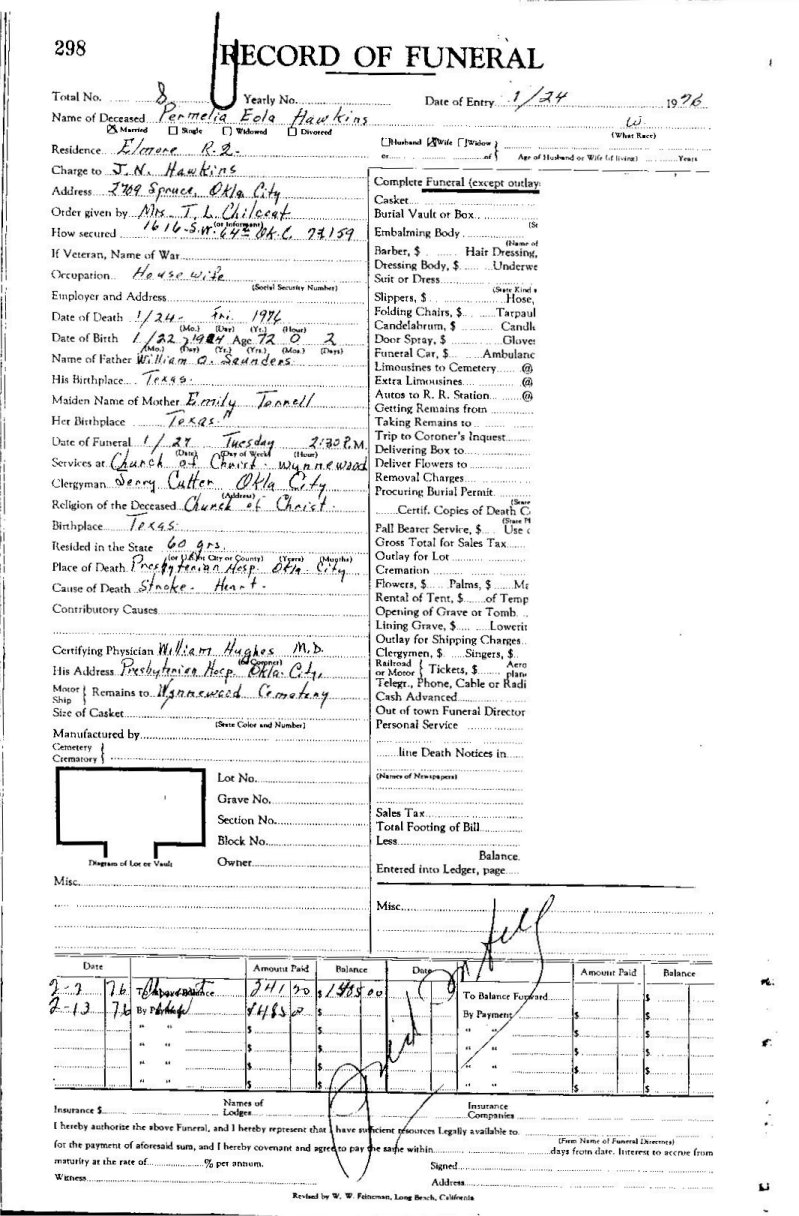 298
RECORD OF FUNERAL
Total No. 8 Yearly No. Date of Entry 1/24 1976
Name of Deceased Permelia Eola Hawkins W
☒ Married ☐ Single ☐ Widowed ☐ Divorced (What Race)
Residence Elmore R.2. ☐Husband ☒Wife ☐Widow } or of { Age of Husband or Wife (if living) Years
Charge to J. N. Hawkins
Address 2709 Spruce, Okla City
Order given by Mrs T. L. Chilcoat
(or Informant)
How secured 1616 S.W. 64th Ok.C. 73159
If Veteran, Name of War
Occupation House wife
(Social Security Number)
Employer and Address
Date of Death 1/24- Fri. 1976
(Mo.) (Day) (Yr.) (Hour)
Date of Birth 1/22 1904 Age 72 0 2
(Mo.) (Day) (Yr.) (Yrs.) (Mos.) (Days)
Name of Father William O. Saunders
His Birthplace Texas.
Maiden Name of Mother Emily Tennell
Her Birthplace Texas."
Date of Funeral 1/27 Tuesday 2:30 P.M.
(Date) (Day of Week) (Hour)
Services at Church of Christ - Wynnewood
Clergyman Jerry Cutter Okla City
(Address)
Religion of the Deceased Church of Christ.
Birthplace Texas.
Resided in the State 60 yrs.
(or U.S. or City or County) (Years) (Months)
Place of Death Presbyterian Hosp. Okla City
Cause of Death Stroke - Heart.
Contributory Causes
Certifying Physician William Hughes M.D.
(or Coroner)
His Address Presbyterian Hosp. Okla. City,
Motor Ship } Remains to Wynnewood Cemetery
Size of Casket
(State Color and Number)
Manufactured by
Cemetery Crematory }
Lot No.
Grave No.
Section No.
Block No.
Owner
Diagram of Lot or Vault
Misc.
Complete Funeral (except outlay
Casket
Burial Vault or Box
(St
Embalming Body
(Name of
Barber, $ Hair Dressing,
Dressing Body, $ Underwe
Suit or Dress
(State Kind a
Slippers, $ Hose,
Folding Chairs, $ Tarpaul
Candelabrum, $ Candl
Door Spray, $ Glove
Funeral Car, $ Ambulanc
Limousines to Cemetery @
Extra Limousines @
Autos to R. R. Station @
Getting Remains from
Taking Remains to
Trip to Coroner's Inquest
Delivering Box to
Deliver Flowers to
Removal Charges
Procuring Burial Permit
(State
Certif. Copies of Death C
(State Pl
Pall Bearer Service, $ Use
Gross Total for Sales Tax
Outlay for Lot
Cremation
Flowers, $ Palms, $ Ma
Rental of Tent, $ of Temp
Opening of Grave or Tomb
Lining Grave, $ Lowerin
Outlay for Shipping Charges
Clergymen, $ Singers, $
Railroad or Motor { Tickets, $ Aero plane
Telegr., Phone, Cable or Radi
Cash Advanced
Out of town Funeral Director
Personal Service
line Death Notices in
(Names of Newspapers)
Sales Tax
Total Footing of Bill
Less
Balance
Entered into Ledger, page
Misc.
Paid in full
Date Amount Paid Balance Date Amount Paid Balance
To Above Balance $ To Balance Forward $
2-13 76 By Payment By Payment $ $
" " $ $ " " $ $
" " $ $ " " $ $
" " $ $ " " $ $
" " $ $ " " $ $
Insurance $ Names of Lodges Insurance Companies
I hereby authorize the above Funeral, and I hereby represent that I have sufficient resources Legally available to
(Firm Name of Funeral Directors)
for the payment of aforesaid sum, and I hereby covenant and agree to pay the same within days from date. Interest to accrue from
maturity at the rate of % per annum. Signed
Witness Address
Revised by W. W. Feineman, Long Beach, California